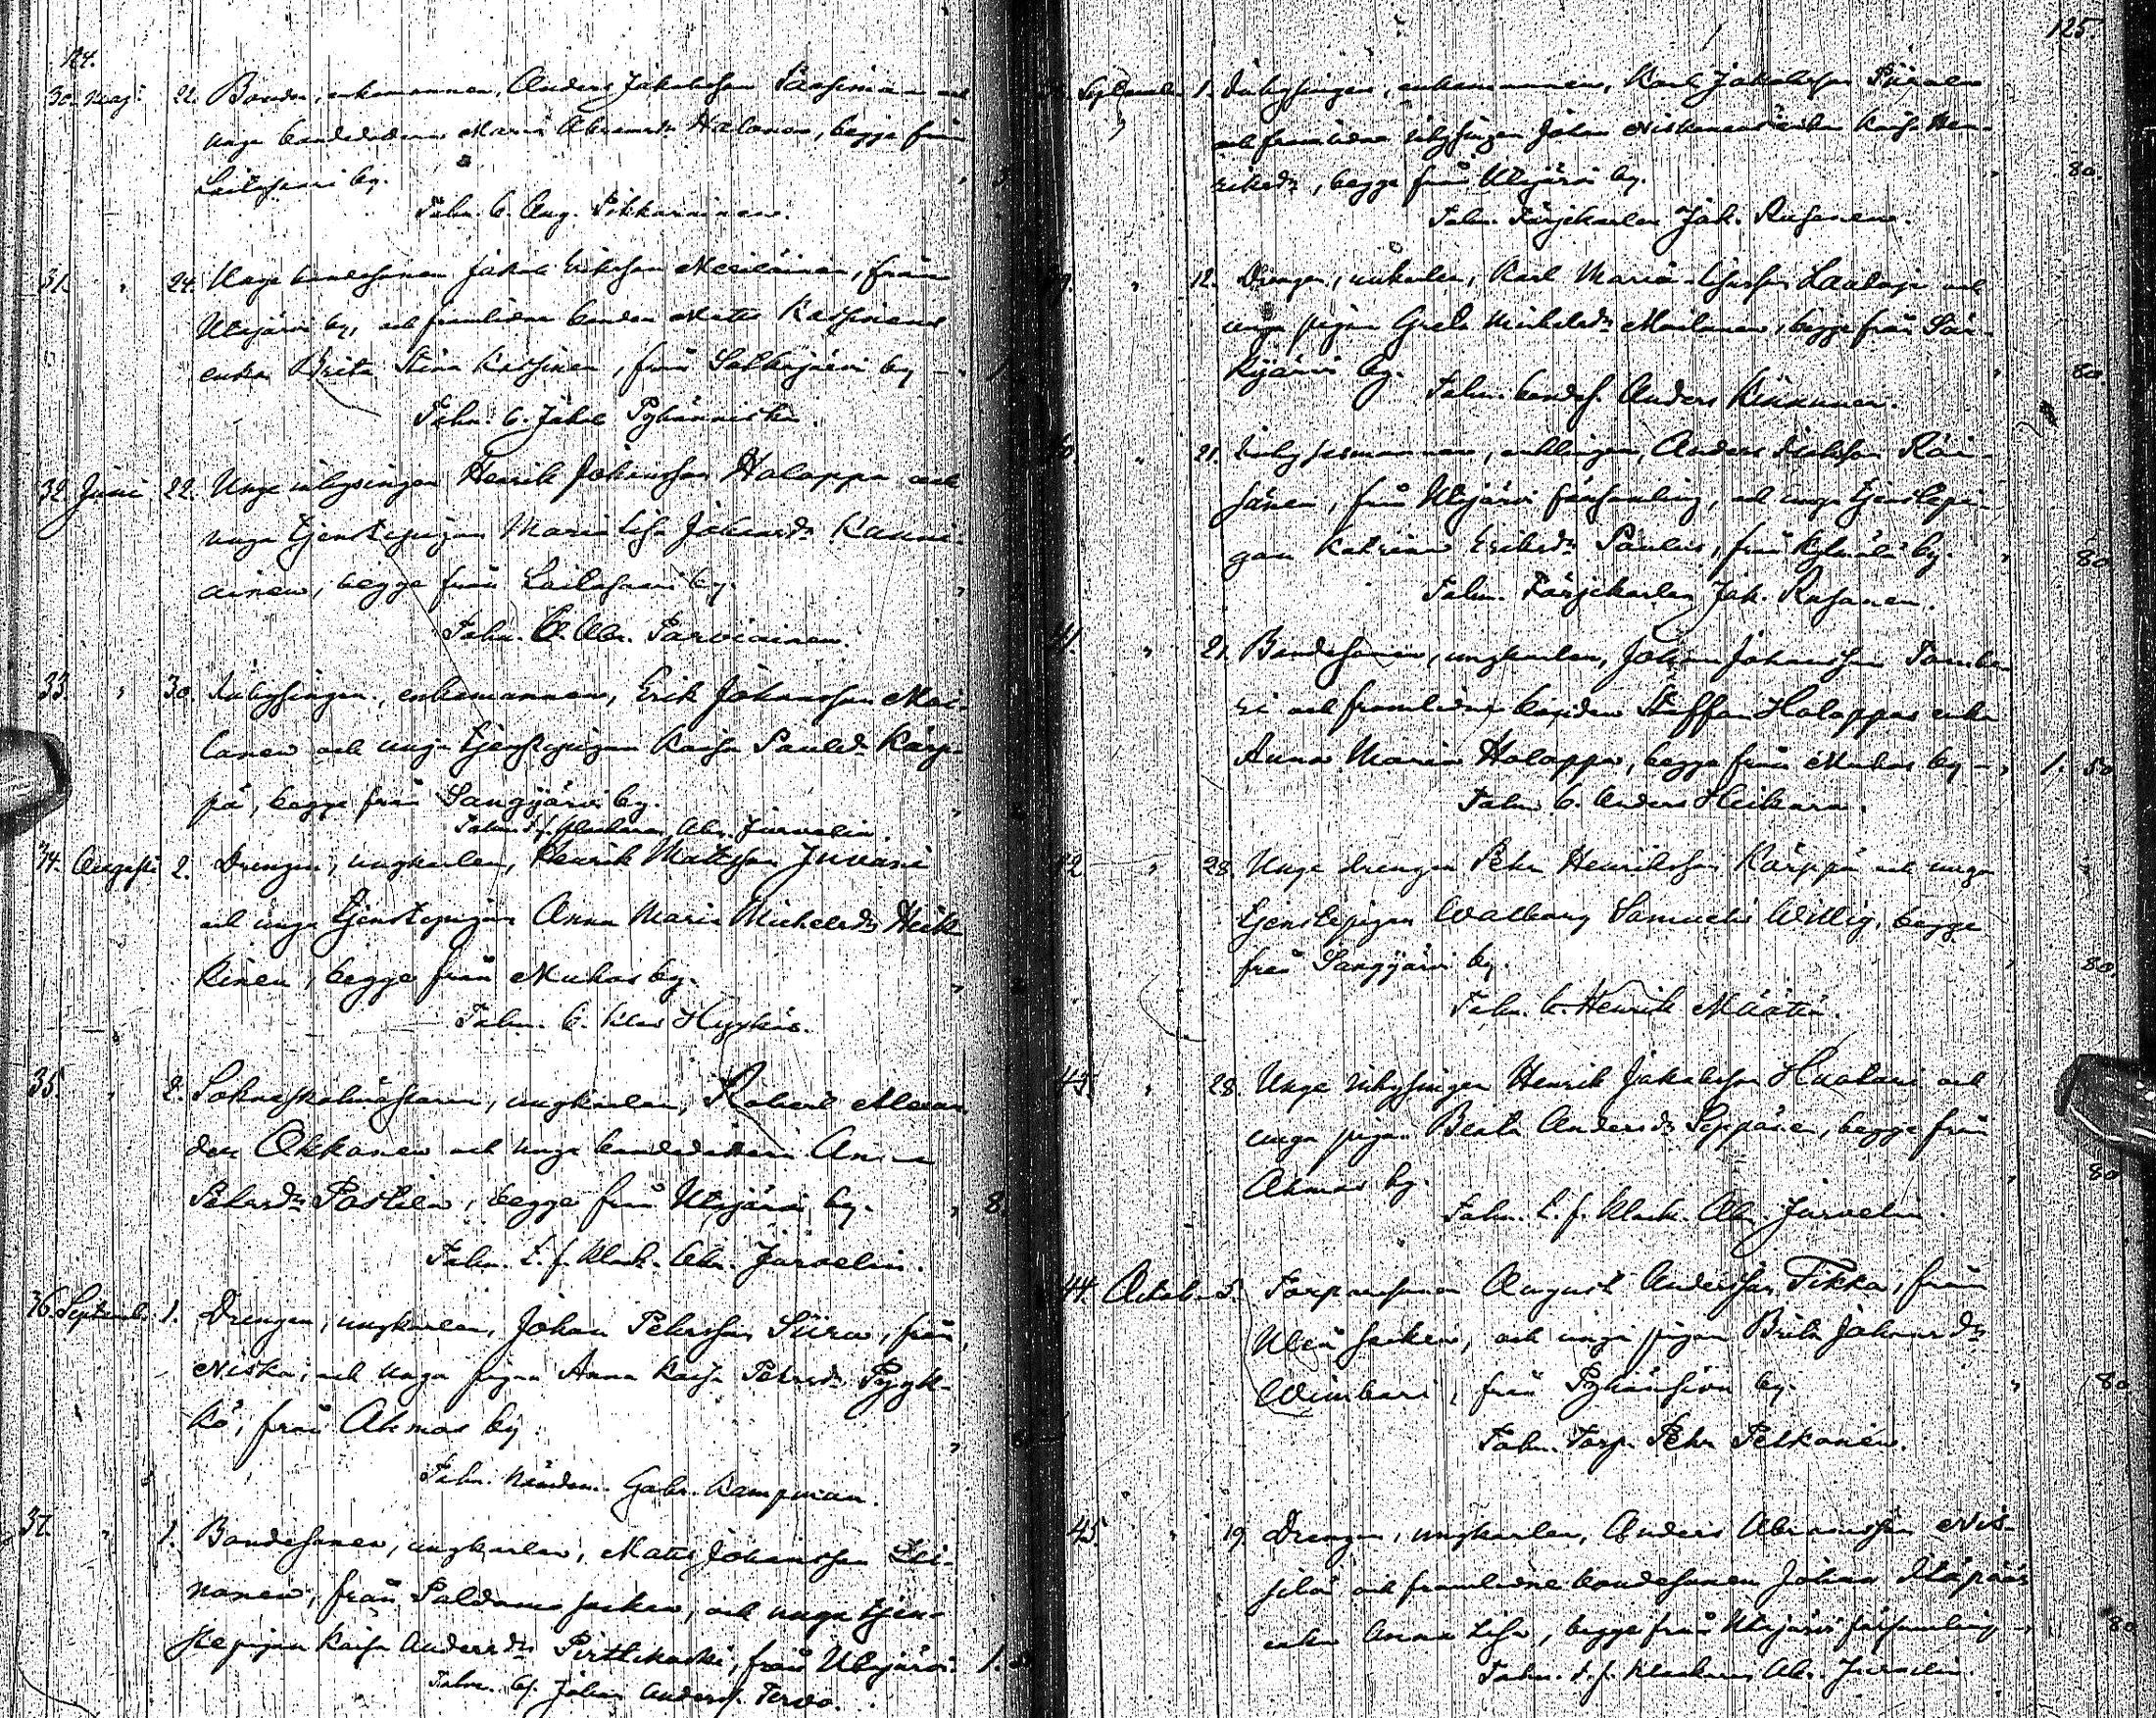 124.
30. Maj 22. Bonden, enkemannen, Anders Jakobsson
unge bondedottern Maria Abramsdr Halonen, begge från
Laitasaari by.
Taln. b. Aug. Pikkarainen.
31. " 24. Unge bondesonen Jakob Eriksson Meriläinen, från
Utajärvi by, och framlidne bonden Matts Karhinens
enka Brita Stina Karhinen, från by - " 1.
Taln. b. Jakob
32. Juni 22. Unge inhysingen Henrik Johansson Holappa och
unga tjenstepigan Maria Lisa Johansdr
ainen, begge från Laitasaari by. "
Taln. b. Abr. Parviainen.
33. " 30. Inhysingen, enkemannen, Erik Johansson Moi-
lanen och unga tjenstepigan Kaisa Paulsdr Kärp-
pä, begge från Sangijärvi by. "
Taln. t.f. klockaren Abr. Jurvelin.
34. Augusti 2. Drengen, ungkarlen, Henrik Mattsson Juvani
och unga tjenstepigan Anna Maria Michelsdr Heik-
kinen, begge från Muhos by. "
Taln. b. Klas Hyrkäs.
35. " 2. Sockneskolmästaren, ungkarlen, Robert Alexan-
der Okkonen och unga bondedottern Anna
Pehrsdr, begge från Utajärvi by. " 8
Taln. t.f. klock. Abr. Jurvelin.
36. Septemb. 1. Drengen, ungkarlen, Johan Pehrsson Siira, från
Niska, och unga pigan Anna Kaisa Pehrsdr Pyyk-
kö, från Ahmas by. "
Taln. nämdem. Gabr. Kampman.
37. " 1. Bondesonen, ungkarlen, Matts Johansson Lei-
nonen, från Paldamo socken, och unga tjen-
stepigan Kaisa Andersdr Pirttikoski, från Utajärvi. 1.
Taln. b. Johan Anderss. Tervo.
125.
September 1. Inhysingen, enkemannen, Karl Jakobsson
och framlidne inhysingen Johan Niskanens enka Kaisa Hen-
riksdr, begge från Utajärvi by. " 80.
Taln. Färjekarlen Jak. Rusanen.
" 12. Drengen, unkarlen, Karl Maria-Lisasson Laaloja och
unga pigan Greta Michelsdr Moilanen, begge från Sär-
kijärvi by. " 80.
Taln. bondes. Anders Kinnunen.
" 21. Inhysesmannen, enklingen, Anders Räi-
sänen, från Utajärvi församling, och unga tjenstepi-
gan Katrina Eriksdr Paulus, från by. " 80
Taln. Färjekarlen Jak. Rusanen.
41. " 21. Bondesonen, ungkarlen, Johan Johansson
ri och framlidne bonden Staffan Holappas enka
Anna Maria Holappa, begge från Muhos by - " 1. 50
Taln. b. Anders Heikura.
42 " 28. Unge drengen Pehr Henriksson Kärppä och unga
tjenstepigan Walborg Samuelsdr Willig, begge
från Sangijärvi by. " 80.
Taln. b. Henrik Määttä.
43. " 28. Unge inhysingen Henrik Jakobsson Huotari och
unga pigan Beata Andersdr Seppänen, begge från
Ahmas by. " 80
Taln. t.f. klock. Abr. Jurvelin.
44. Octob. 5. Torparesonen August Andersson Tikka, från
Uleå socken, och unga pigan Brita Johansdr
Wimbari, från by. " 80
Taln. Torp. Pehr Pelkonen.
45. " 19. Drengen, ungkarlen, Anders Abramsson Nis-
silä och framlidne bondesonen Johan
enka Anna Lisa, begge från Utajärvi församling - " 80
Taln. t.f. klockaren Abr. Jurvelin.